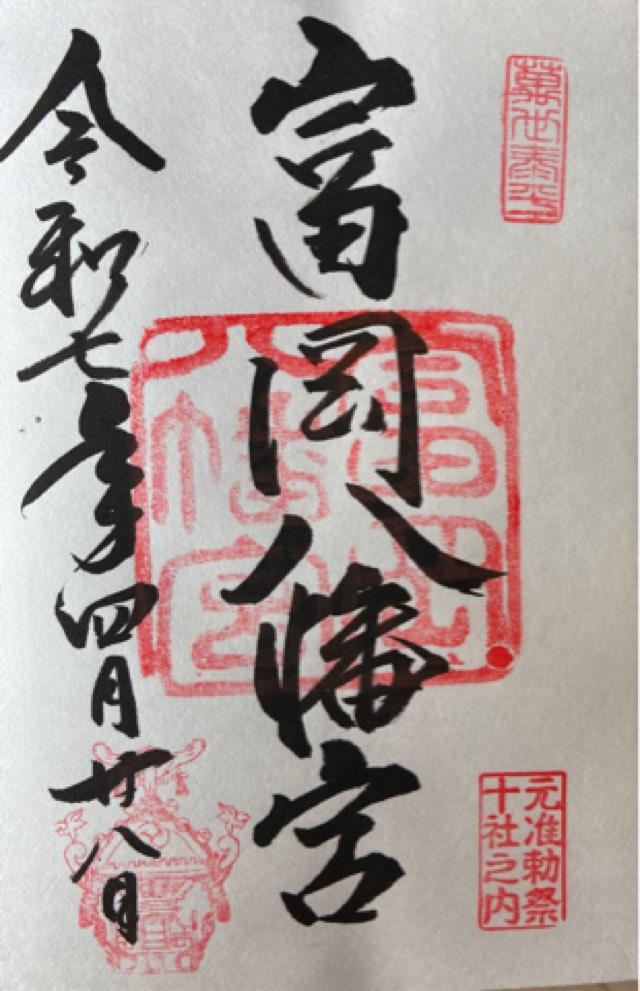 萬世泰平
元准勅祭
十社之内
富岡八幡宮
富岡
八幡宮
令和七年四月廿八日